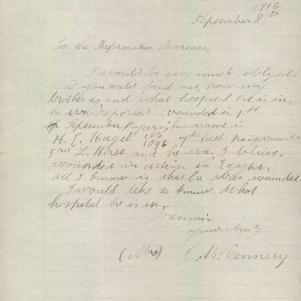 1916
September 8th
To the Information Bureau,
I would be very much obliged
if you would find out how my
brother is and what hospital he is in,
he was reported wounded in 1st
September Papers, his name is
H. C. 1096 7th Field
L. Horse and he was I believe,
wounded in action in Egypt,
all I know is that he was wounded
I would like to know what
hospital he is in,
I remain
yours truly
(Mrs) E. McKennery